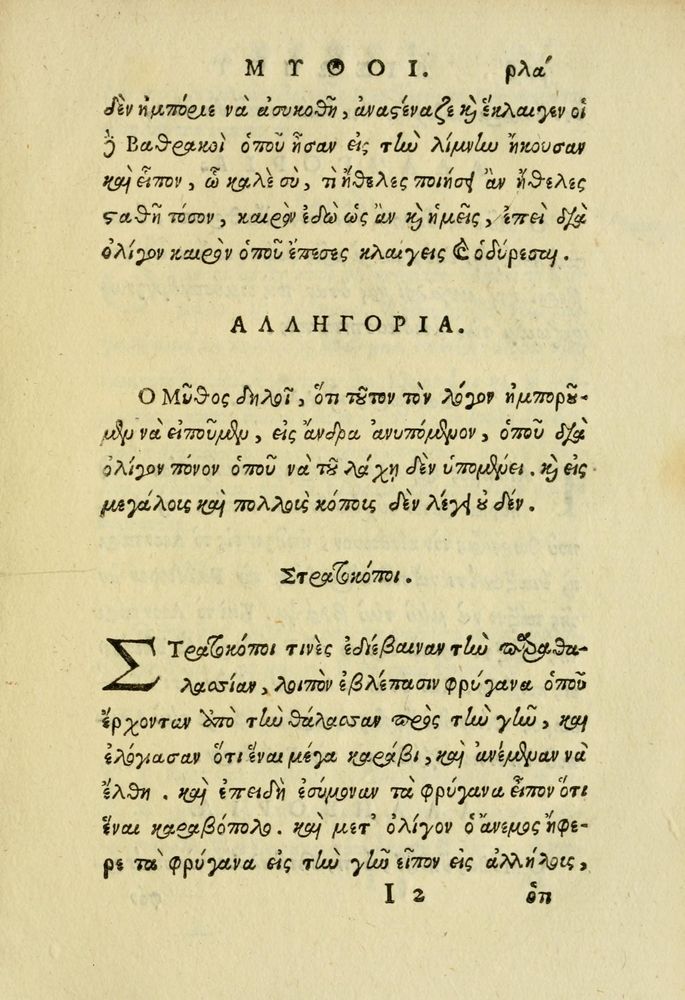 ΜΥΘΟΙ. ρλα'
δὲν ἠμπόριε νὰ ἀσυκοθῆ, ἀναςέναζε καὶ ἔκλαιγεν οἱ
ὃ Βαθρακοὶ ὁποῦ ἦσαν εἰς τὴν λίμνην ἤκουσαν
καὶ εἶπον, ὦ καλὲ σὺ, τὶ ἤθελες ποιήση ἂν ἤθελες
ςαθῆ τόσον, καιρὸν ἐδὼ ὡς ἂν καὶ ἡμεῖς, ἐπεὶ διὰ
ὀλίγον καιρὸν ὁποῦ ἔπεσες κλαιγεις καὶ ὀδύρεσαι.
ΑΛΛΗΓΟΡΙΑ.
Ο Μῦθος δηλοῖ, ὅτι τοῦτον τὸν λόγον ἠμποροῦ-
μεν νὰ εἰποῦμεν, εἰς ἄνδρα ἀνυπόμενον, ὁποῦ διὰ
ὀλίγον πόνον ὁποῦ νὰ τοῦ λάχη δὲν ὑπομένει. καὶ εἰς
μεγάλοις καὶ πολλοῖς κόποις δὲν λέγει οὐδέν.
Στρατοκόποι.
ΣΤρατοκόποι τινὲς ἐδιέβαιναν τὴν παραθα-
λασσίαν, λοιπὸν ἐβλέπασιν φρύγανα ὁποῦ
ἔρχονταν ἀπὸ τὴν θάλασσαν πρὸς τὴν γῆν, καὶ
ἐλόγιασαν ὅτι ἔναι μέγα καράβι, καὶ ἀνέμεναν νὰ
ἔλθη. καὶ ἐπειδὴ ἐσύμοναν τὰ φρύγανα εἶπον ὅτι
ἔναι καραβόπολο. καὶ μετ' ὀλίγον ὁ ἄνεμος ἤφε-
ρε τὰ φρύγανα εἰς τὴν γῆν εἶπον εἰς ἀλλήλοις,
Ι 2 ὅπ